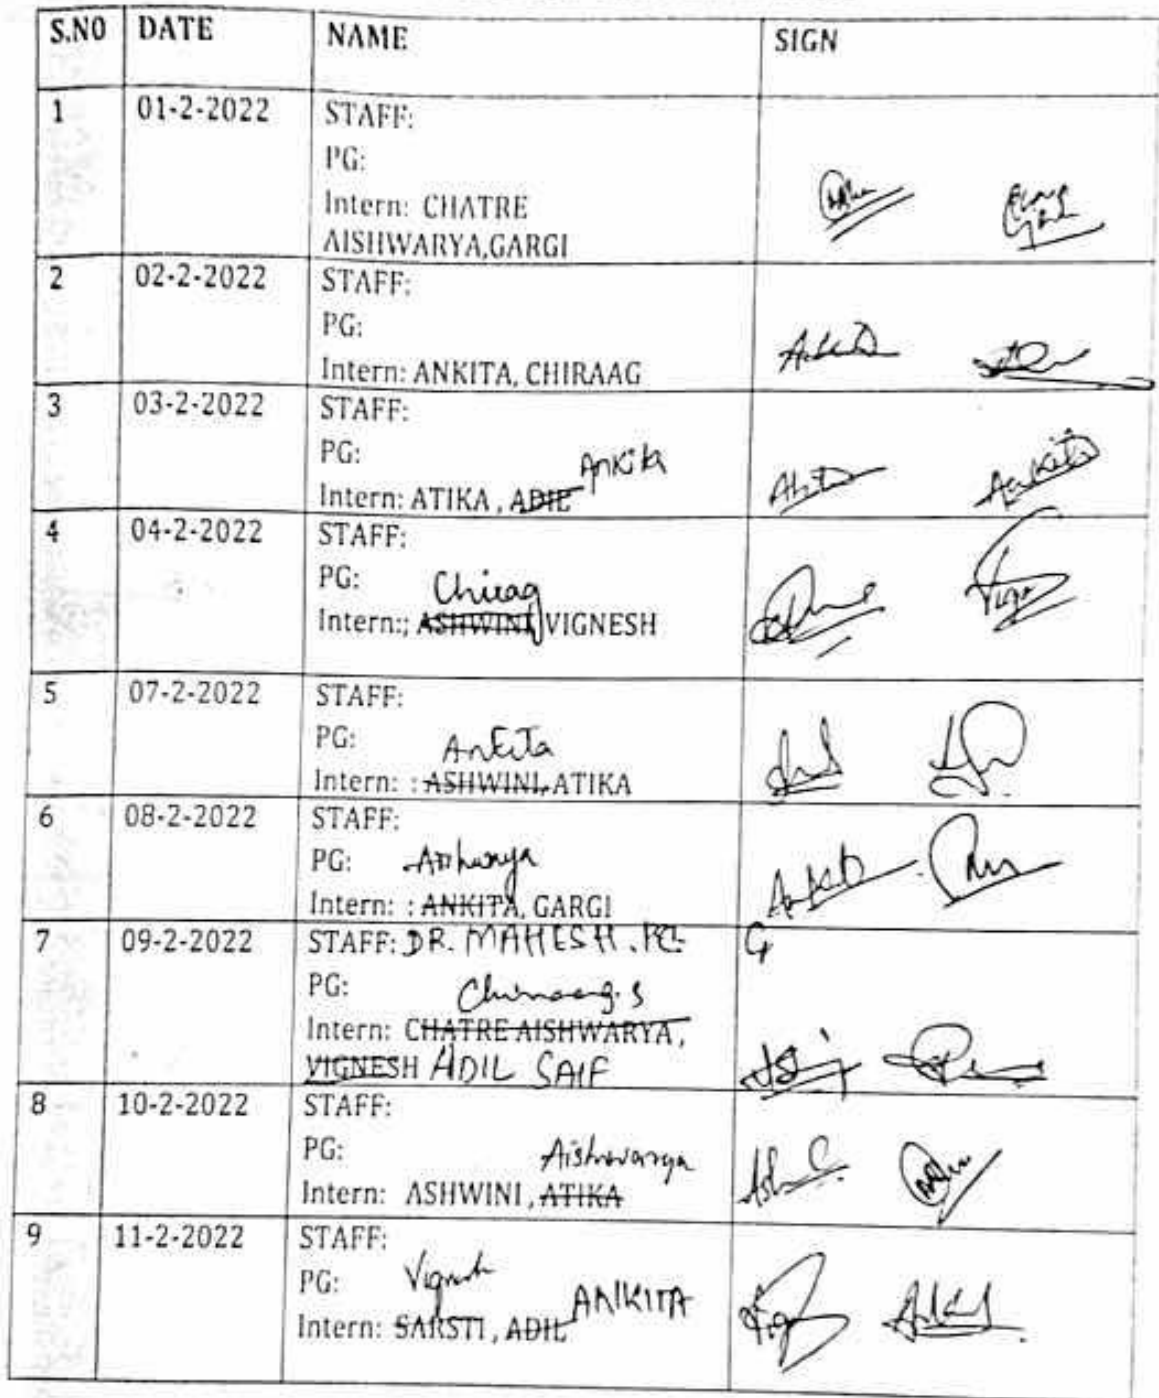 S.NO DATE NAME SIGN
1 01-2-2022 STAFF:
PG:
Intern: CHATRE
AISHWARYA,GARGI
2 02-2-2022 STAFF:
PG:
Intern: ANKITA, CHIRAAG
3 03-2-2022 STAFF:
PG: Ankita
Intern: ATIKA , ADIL Ankita
4 04-2-2022 STAFF:
PG: Chiraag
Intern:; ASHWINI, VIGNESH
5 07-2-2022 STAFF:
PG: Ankita
Intern: : ASHWINI, ATIKA
6 08-2-2022 STAFF:
PG: Aishwarya
Intern: : ANKITA, GARGI
7 09-2-2022 STAFF: DR. MAHESH . PG G
PG: Chiraag.S
Intern: CHATRE AISHWARYA,
VIGNESH ADIL SAIF
8 10-2-2022 STAFF:
PG: Aishwarya
Intern: ASHWINI , ATIKA
9 11-2-2022 STAFF:
PG: Vignesh ANKITA
Intern: SARSTI , ADIL